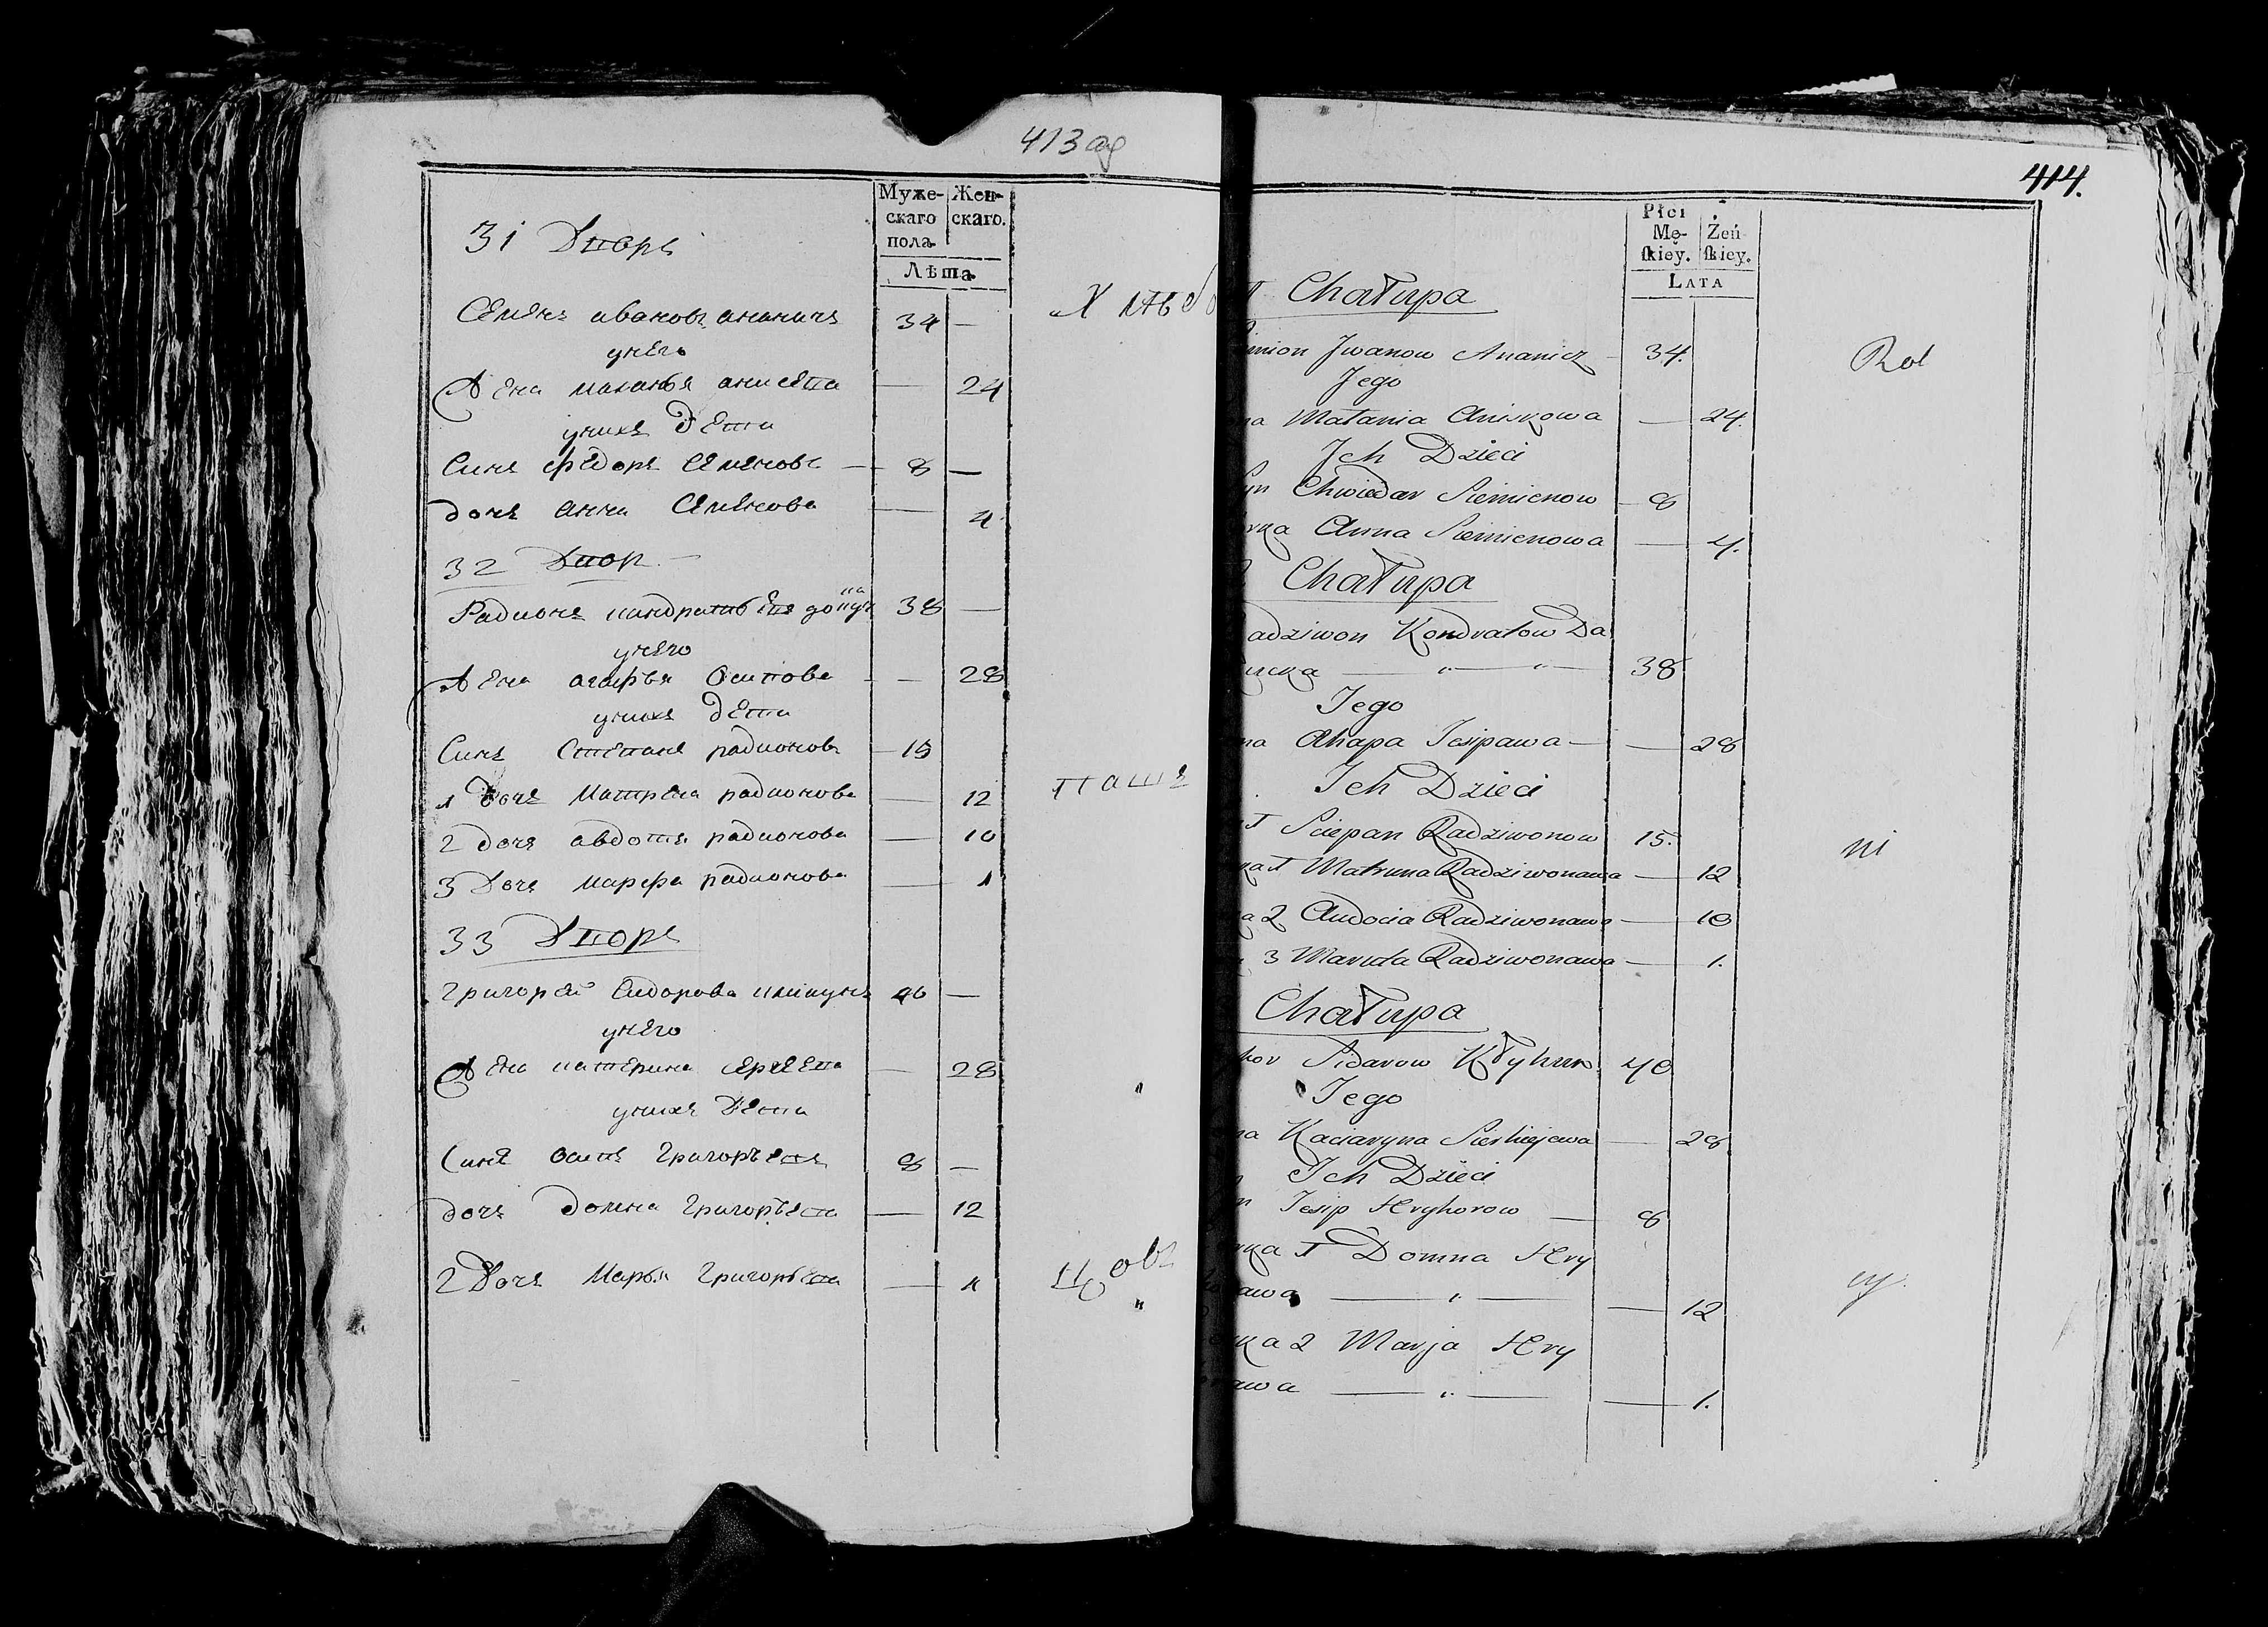 413 об
Муже-
скаго
пола.
Жен-
скаго.
Лѣта.
31 Дворъ
Семенъ ивановъ ананичъ 34 —
унего
Жена маланья анисева — 24
унихъ дети
Синъ федоръ Семеновъ — 8 —
дочъ анна Семенова — 4
32 Двор —
Радионъ 38 —
унего
Жена агафья Осипова — — 28
унихъ дети
Синъ Степанъ радионовъ — 15
1 дочъ Матрена радионова — 12
2 дочъ авдотя радионова — 10
3 Дочъ марфа радионова — 1
33 Дворъ
Григорей Сидоровъ 40 —
унего
Жена катерина сергеева — 28
унихъ дети
Синъ осипъ Григорьевъ 8 —
дочъ домна Григорьева — 12
2 Дочъ Марья Григорьева — 1
Хлѣбо
пашъ
цовъ
414.
Płci
Mę-
ſkiey.
Żeń
ſkiey.
LATA
1 Chałupa
imion Jwanow Ananicz — 34.
Jego
na Małania Aniskowa — 24.
Jch Dzieci
yn Chwiedar Siemienow — 8
rka Anna Siemienowa — 4.
Chałupa
adziwon Kondratow Da
ucka — " — " — 38
Jego
na Ahapa Jesipawa — — 28
Jch Dzieci
1 Sciepan Radziwonow 15.
ka 1 Matruna Radziwonawa — 12
a 2 Audocia Radziwonawa — 10
3 Maruta Radziwonawa — 1.
Chałupa
hor Sidarow Kłykun 40
Jego
na Kaciaryna Sierhiejewa — 28
Jch Dzieci
n Jesip Hryhorow — 8
rka 1 Domna Hry
awa — " — — 12
ka 2 Marja Hry
awa — " — — 1.
Rol
ni
cy.